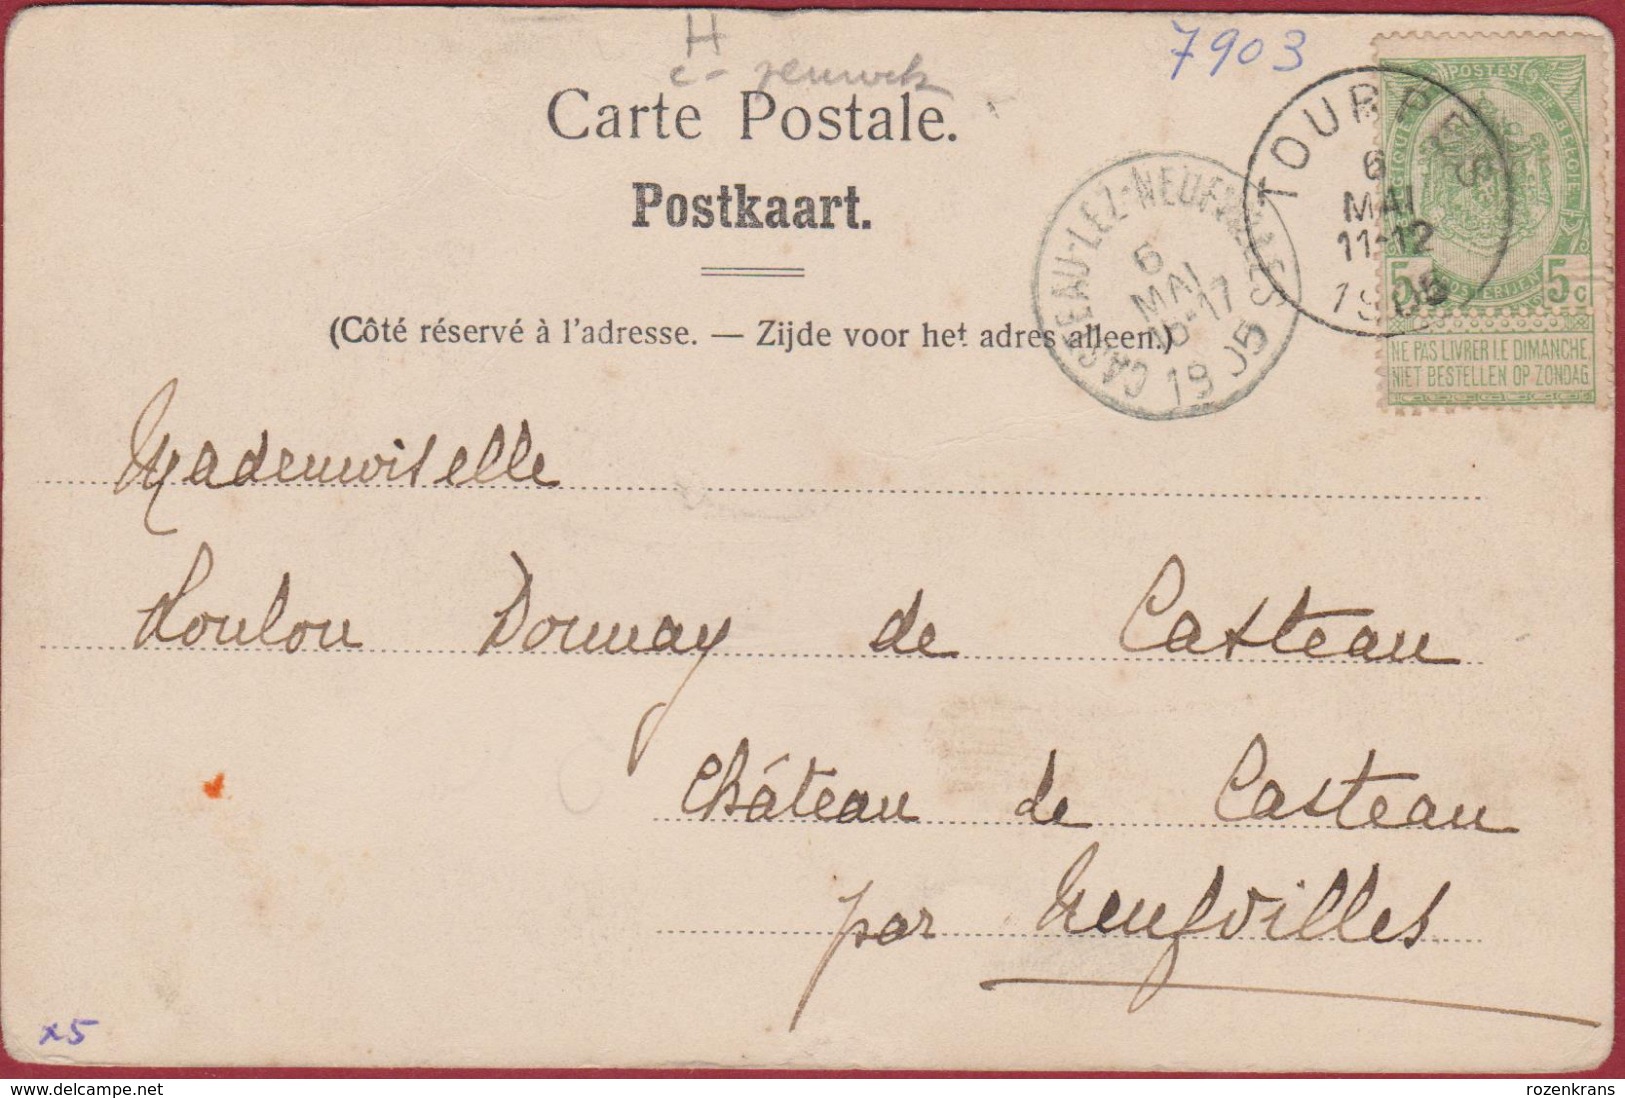 H
7903
Carte Postale.
Postkaart.
(Côté réservé à l'adresse. — Zijde voor het adres alleen.)
CASTEAU-LEZ-NEUFVILLES
6
MAI
16-17
1905
TOURPES
6
MAI
11-12
1905
POSTES
BELGIQUE
BELGIE
POSTERIJEN
5c 5c
NE PAS LIVRER LE DIMANCHE
NIET BESTELLEN OP ZONDAG
Mademoiselle
Loulou Dounay de Casteau
Château de Casteau
par Neufvilles
x5
delcampe.net
rozenkrans